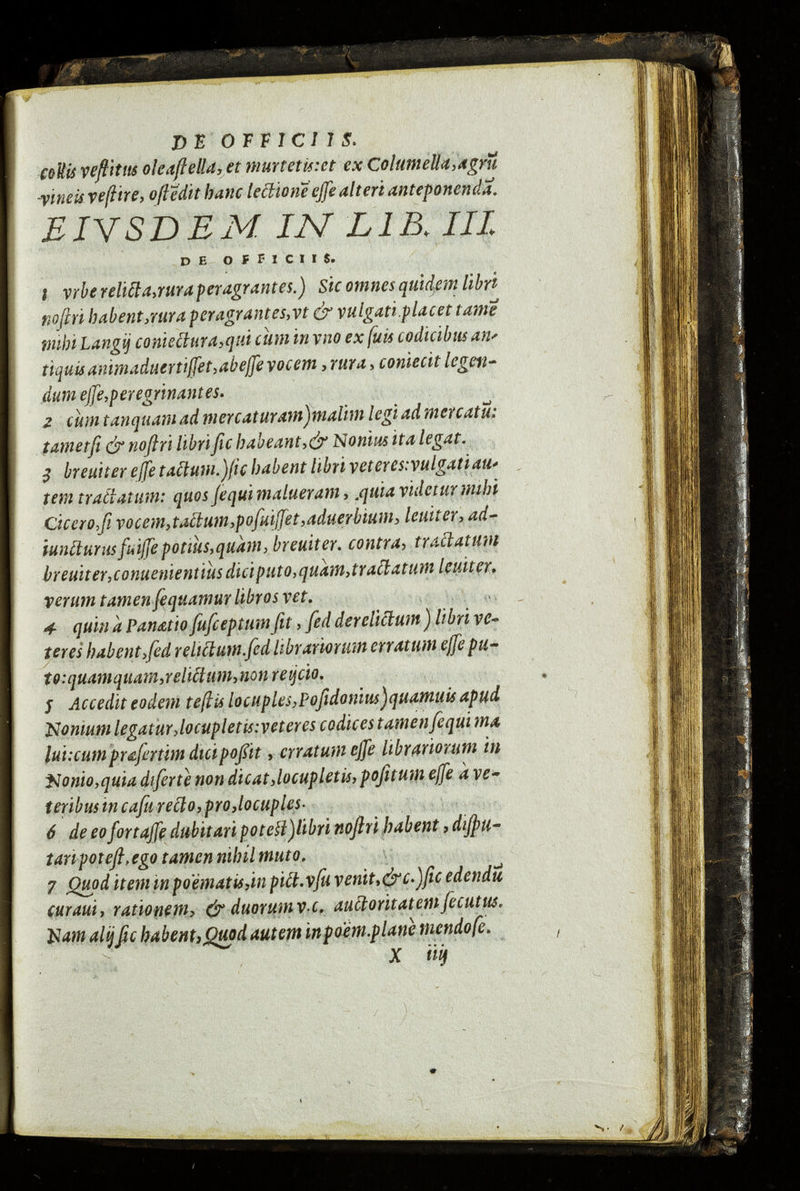 DE OFFICIIS.
collis veſtitus oleaſtella, et murtetis:et ex Columella, agrū
vineis veſtire, oſtēdit hanc lectionē eſſe alteri anteponendā.
EIVSDEM IN LIB. III.
DE OFFICIIS.
1 vrbe relicta,rura peragrantes.) Sic omnes quidem libri
noſtri habent,rura peragrantes,vt & vulgati.placet tamē
mihi Langij coniectura,qui cùm in vno ex ſuis codicibus an-
tiquis animaduertiſſet,abeſſe vocem , rura , coniecit legen-
dum eſſe,peregrinantes.
2 cùm tanquam ad mercaturam)malim legi ad mercatū:
tametſi & noſtri libri ſic habeant,& Nonius ita legat.
3 breuiter eſſe tactum.)ſic habent libri veteres:vulgati au-
tem tractatum: quos ſequi malueram , quia videtur mihi
Cicero,ſi vocem,tactum,poſuiſſet,aduerbium, leuiter, ad-
iuncturus fuiſſe potiùs,quàm, breuiter. contra, tractatum
breuiter,conuenientiùs dici puto,quàm,tractatum leuiter.
verum tamen ſequamur libros vet.
4 quin à Panætio ſuſceptum ſit , ſed derelictum ) libri ve-
teres habent,ſed relictum.ſed librariorum erratum eſſe pu-
to:quamquam,relictum,non reijcio.
5 Accedit eodem teſtis locuples,Poſidonius)quamuis apud
Nonium legatur,locupletis:veteres codices tamen ſequi ma
lui:cum præſertim dici poßit , erratum eſſe librariorum in
Nonio,quia diſertè non dicat,locupletis, poſitum eſſe à ve-
teribus in caſu recto,pro,locuples.
6 de eo fortaſſe dubitari poteſt)libri noſtri habent , diſpu-
tari poteſt, ego tamen nihil muto.
7 Quod item in poëmatis,in pict.vſu venit,&c.)ſic edendū
curaui, rationem, & duorum v.c. auctoritatem ſecutus.
Nam alij ſic habent,Quod autem in poëm.planè mendoſe.
X iiij